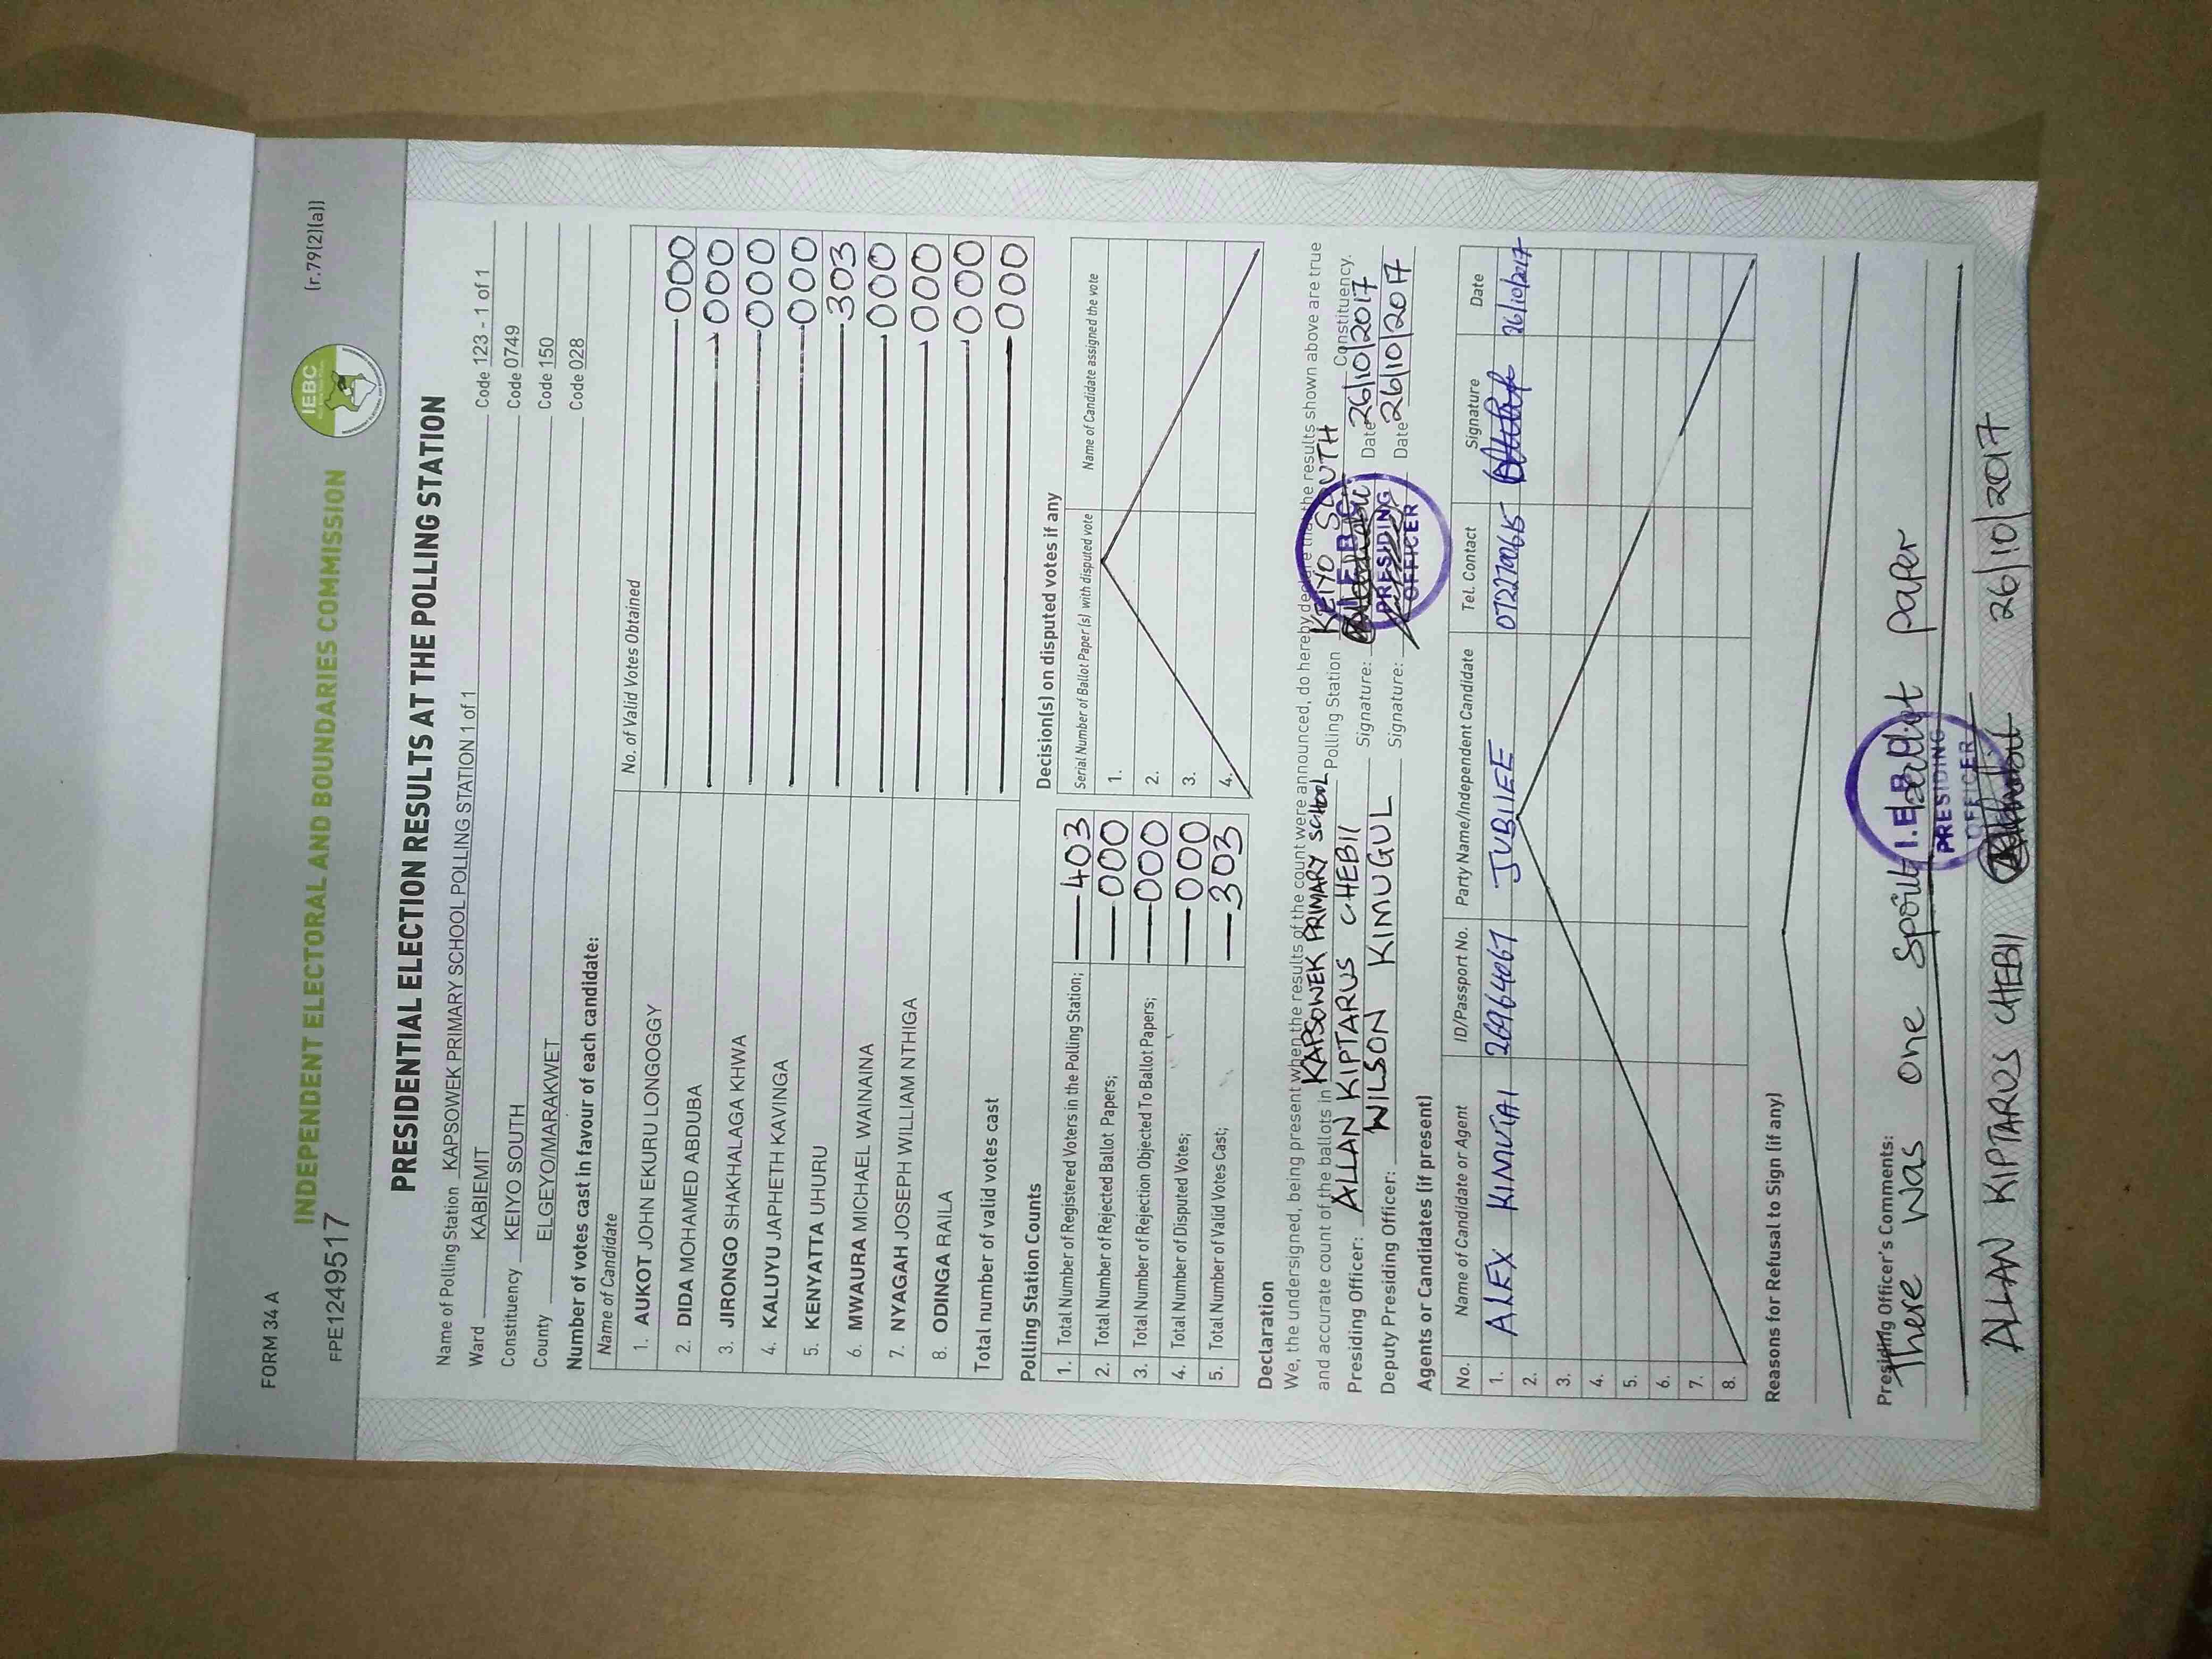 FORM 34 A
(r.79(2)(a))
INDEPENDENT ELECTORAL AND BOUNDARIES COMMISSION
IEBC
FPE1249517
PRESIDENTIAL ELECTION RESULTS AT THE POLLING STATION
Name of Polling Station KAPSOWEK PRIMARY SCHOOL POLLING STATION 1 of 1 Code 123 - 1 of 1
Ward KABIEMIT Code 0749
Constituency KEIYO SOUTH Code 150
County ELGEYO/MARAKWET Code 028
Number of votes cast in favour of each candidate:
Name of Candidate No. of Valid Votes Obtained
1. AUKOT JOHN EKURU LONGOGGY 000
2. DIDA MOHAMED ABDUBA 000
3. JIRONGO SHAKHALAGA KHWA 000
4. KALUYU JAPHETH KAVINGA 000
5. KENYATTA UHURU 303
6. MWAURA MICHAEL WAINAINA 000
7. NYAGAH JOSEPH WILLIAM NTHIGA 000
8. ODINGA RAILA 000
Total number of valid votes cast 000
Polling Station Counts
1. Total Number of Registered Voters in the Polling Station; 403
2. Total Number of Rejected Ballot Papers; 000
3. Total Number of Rejection Objected To Ballot Papers; 000
4. Total Number of Disputed Votes; 000
5. Total Number of Valid Votes Cast; 303
Decision(s) on disputed votes if any
Serial Number of Ballot Paper (s) with disputed vote Name of Candidate assigned the vote
1.
2.
3.
4.
Declaration
We, the undersigned, being present when the results of the count were announced, do hereby declare that the results shown above are true
and accurate count of the ballots in KAPSOWEK PRIMARY SCHOOL Polling Station KEIYO SOUTH Constituency.
Presiding Officer: ALLAN KIPTARUS CHEBII Signature: Date 26/10/2017
Deputy Presiding Officer: WILSON KIMUGUL Signature: Date 26/10/2017
I.E.B.C
PRESIDING
OFFICER
Agents or Candidates (if present)
No. Name of Candidate or Agent ID/Passport No. Party Name/Independent Candidate Tel. Contact Signature Date
1. ALEX JUBILEE 26/10/2017
2.
3.
4.
5.
6.
7.
8.
Reasons for Refusal to Sign (if any)
Presiding Officer's Comments:
There was one spoilt ballot paper
I.E.B.C
PRESIDING
OFFICER
ALLAN KIPTARUS CHEBII 26/10/2017